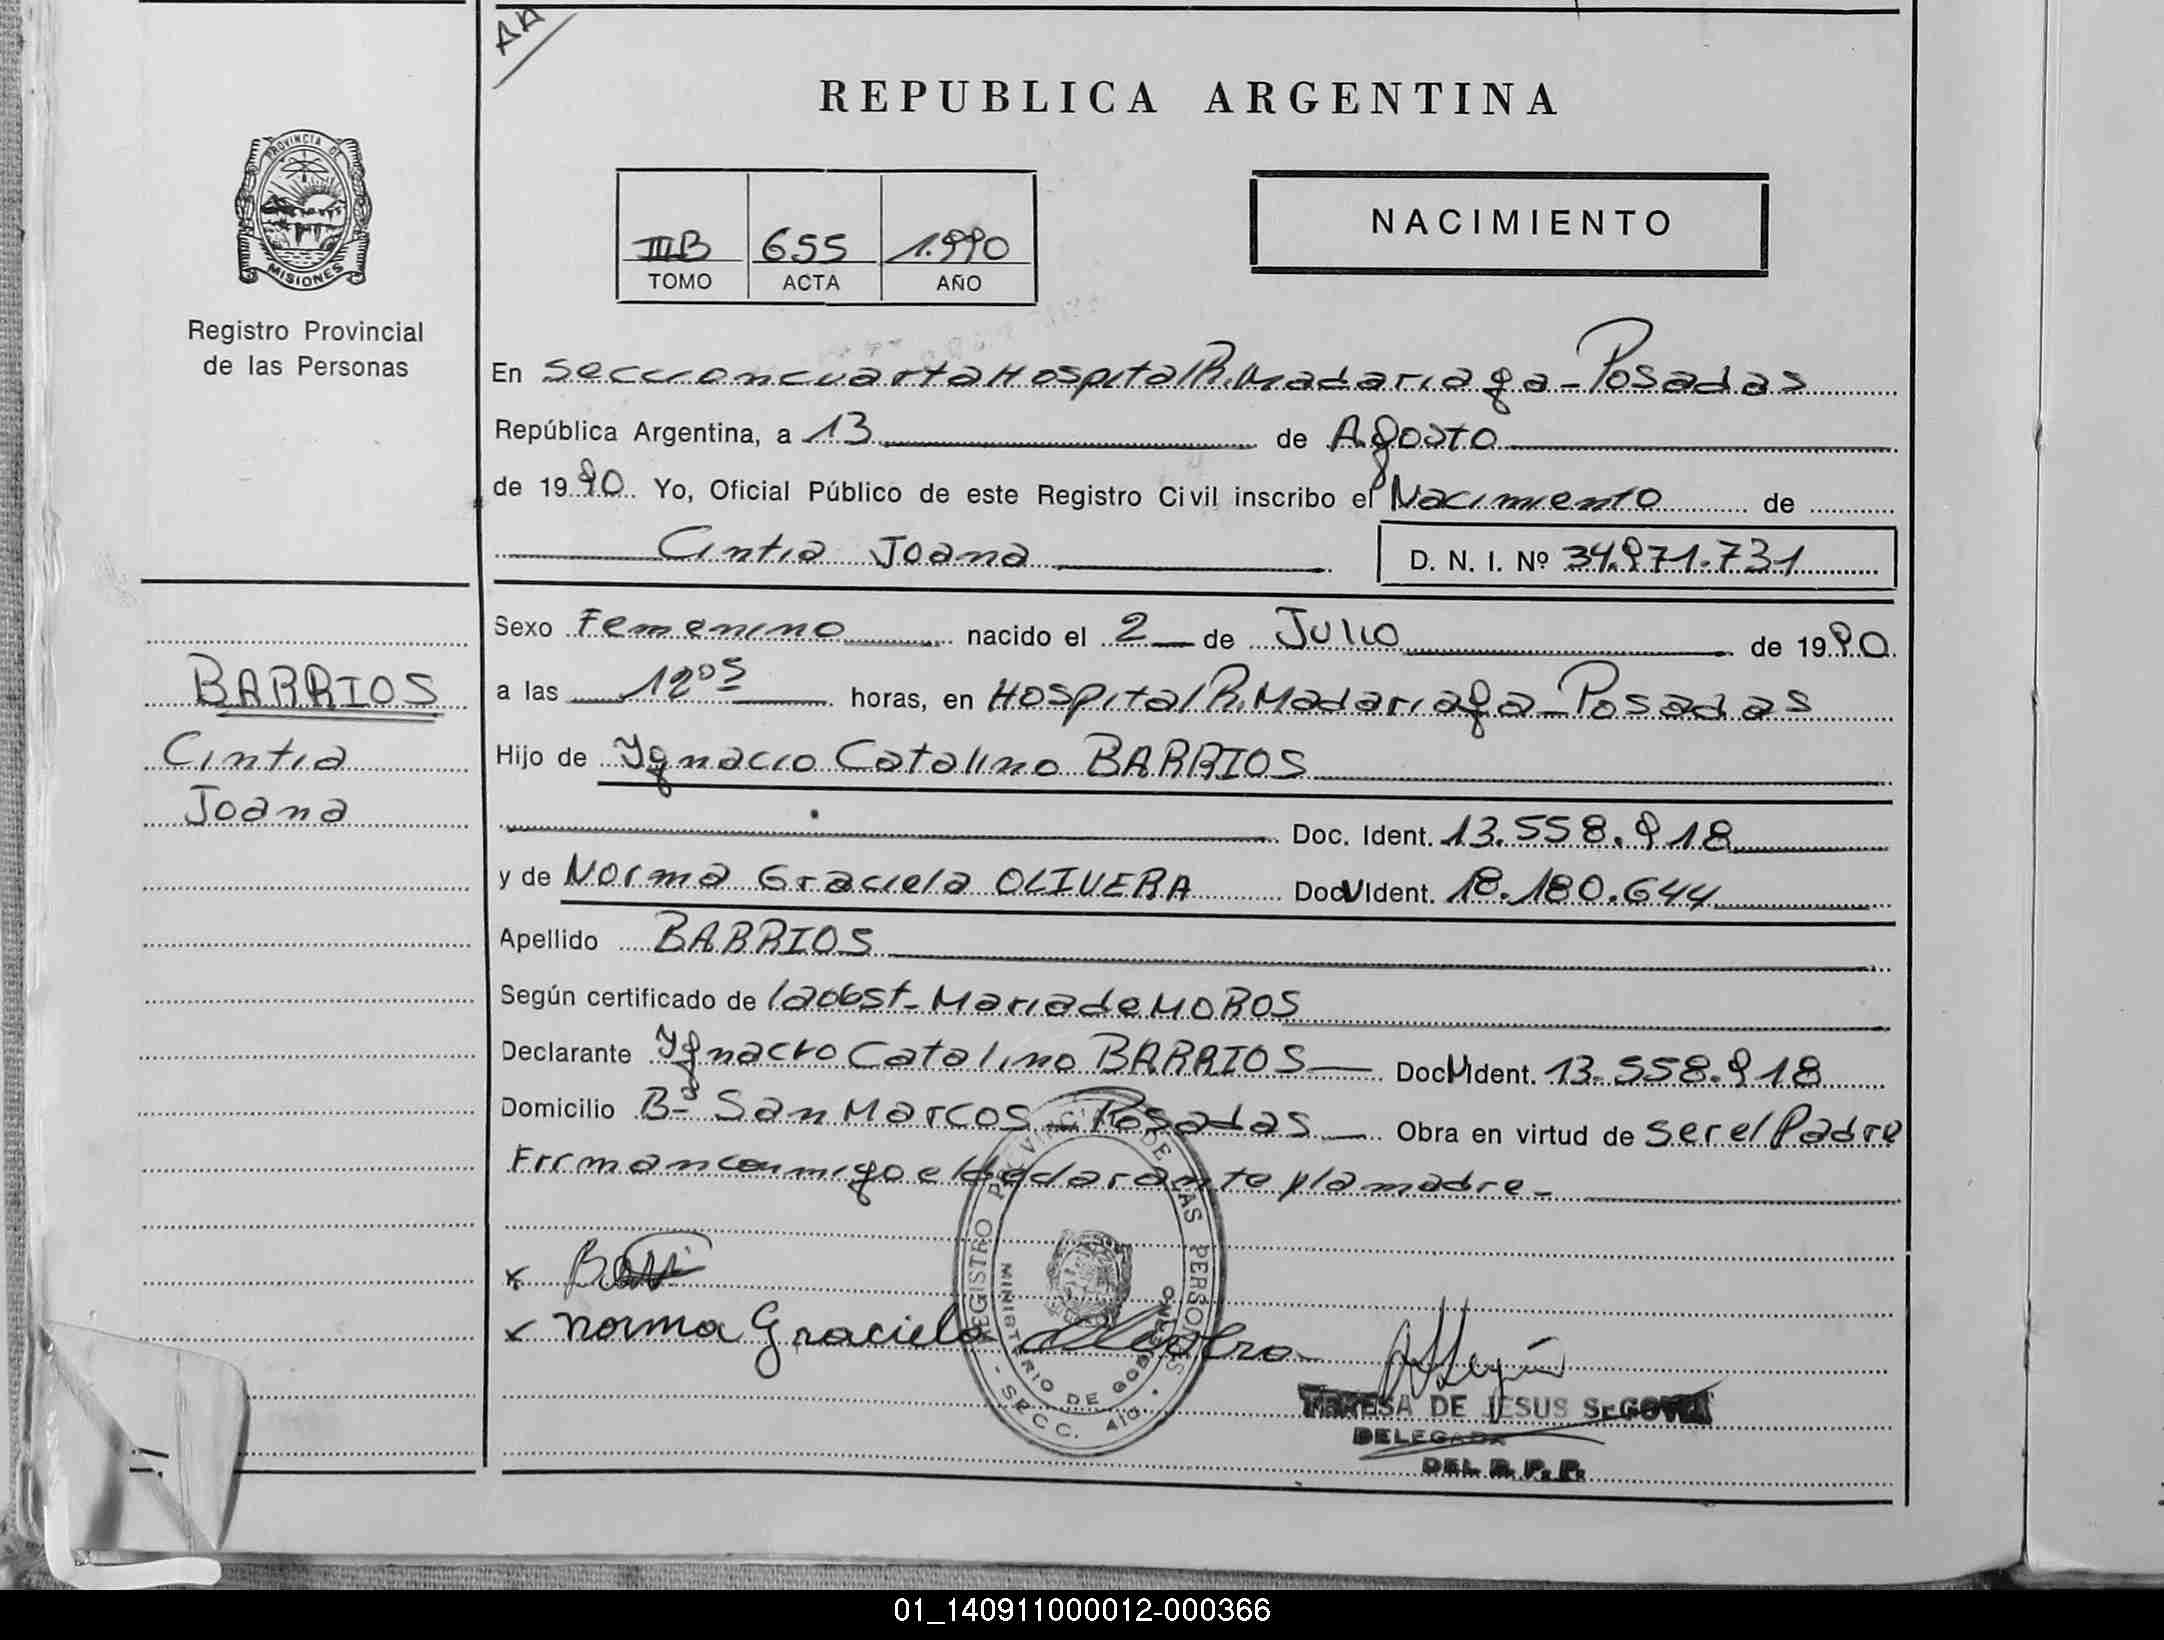 AA
REPUBLICA ARGENTINA
PROVINCIA DE
MISIONES
Registro Provincial
de las Personas
NACIMIENTO
IIIB 655 1.990
TOMO ACTA AÑO
En Seccion cuarta Hospital R. Madariaga - Posadas
República Argentina, a 13 de Agosto
de 1990 Yo, Oficial Público de este Registro Civil inscribo el Nacimiento de
Cintia Joana D. N. I. Nº 34.971.731
Sexo Femenino nacido el 2 de Julio de 1990
a las 12⁰⁵ horas, en Hospital R. Madariaga - Posadas
BARRIOS
Cintia
Joana
Hijo de Ygnacio Catalino BARRIOS
Doc. Ident. 13.558.918
y de Norma Graciela OLIVERA Doc Ident. 18.180.644
Apellido BARRIOS
Según certificado de la obst. Maria de MOROS
Declarante Ygnacio Catalino BARRIOS Doc Ident. 13.558.918
Domicilio Bº San Marcos - Posadas Obra en virtud de ser el Padre
Firman conmigo el declarante y la madre -
REGISTRO PROVINCIAL DE LAS PERSONAS
MINISTERIO DE GOBIERNO
- SECC. 4ta.
x
x Norma Graciela
TERESA DE JESUS SEGOVIA
DELEGADA
DEL R. P. P.
01_140911000012-000366